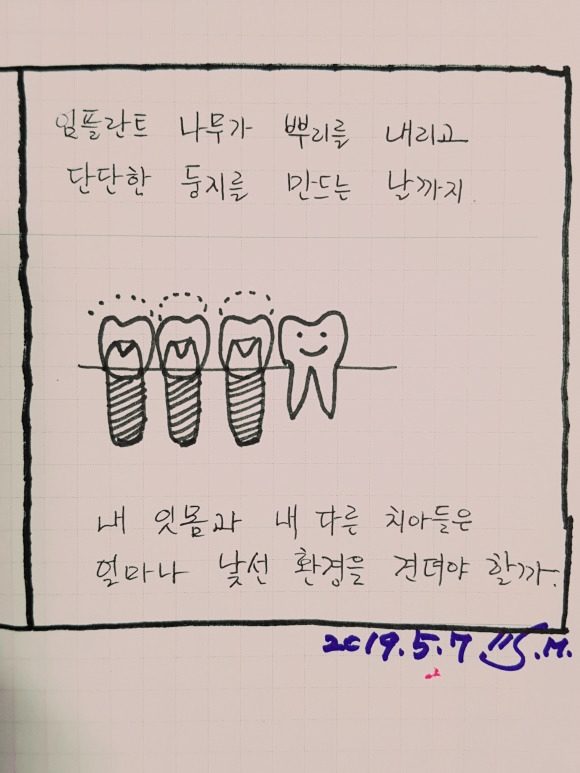 임플란트 나무가 뿌리를 내리고
단단한 둥지를 만드는 날까지.
내 잇몸과 내 다른 치아들은
얼마나 낯선 환경을 견뎌야 할까.
2019.5.7